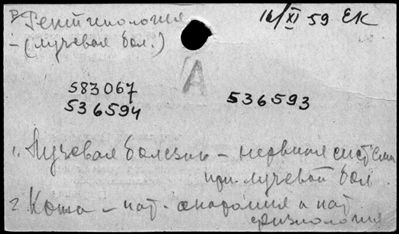 16/XI 59 ЕК
- (лучевая бол.)
А
583067
536594
536593
1. Лучевая болезнь - нервная система
при лучевой бол.
2. Кожа - пат. анатомия и пат
физиология